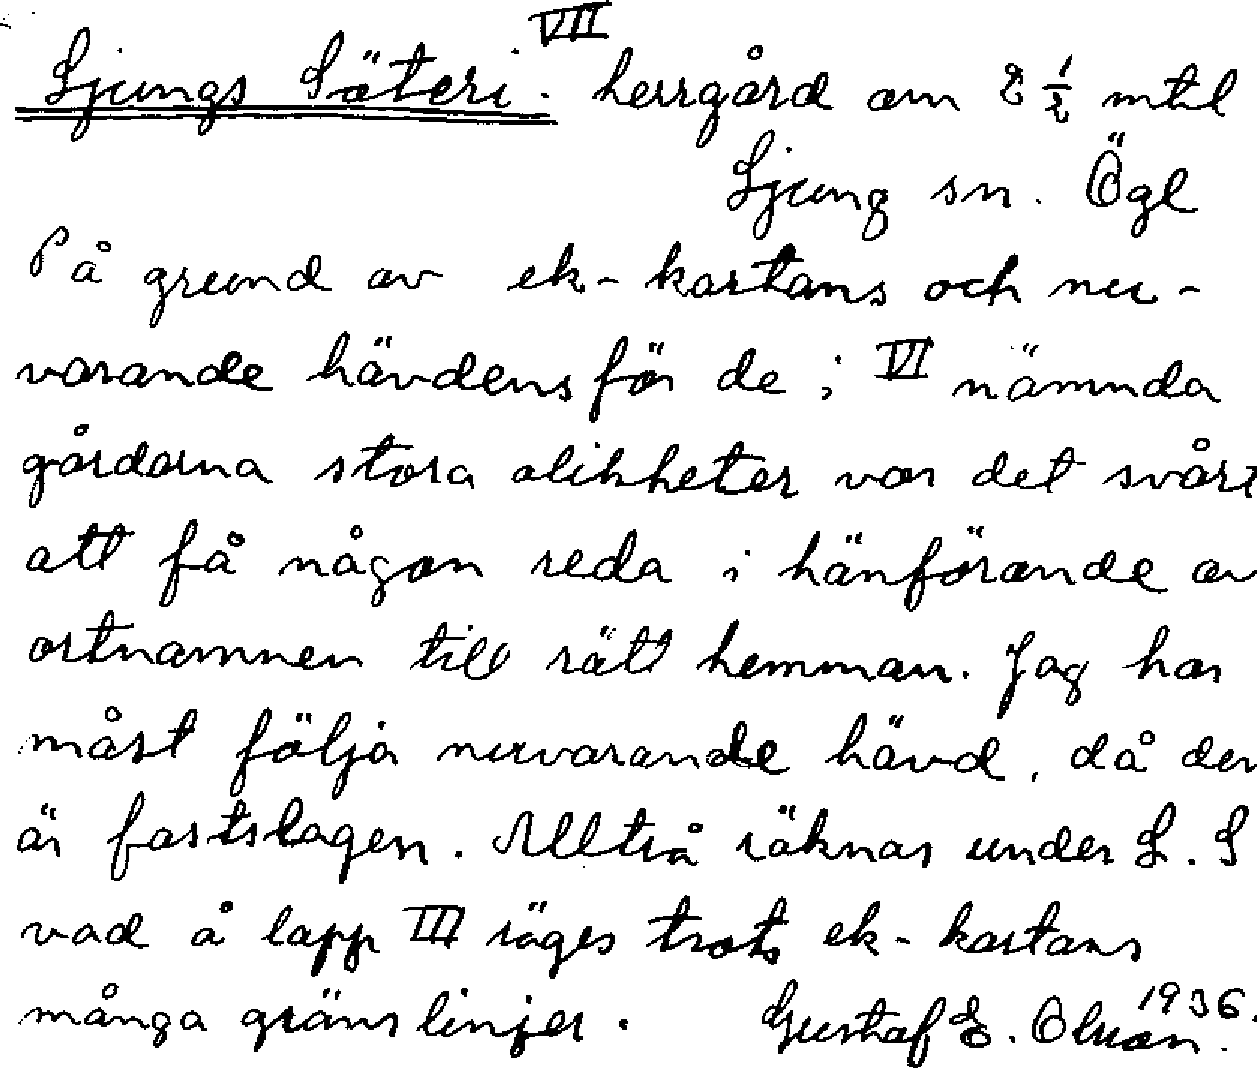 VII
Ljungs Säteri. herrgård om 2 1/2 mtl
Ljung sn. Ögl
På grund av ek-kartans och nu-
varande hävdens för de i VI nämnda
gårdarna stora olikheter var det svårt
att få någon reda i hänförande av
ortnamnen till rätt hemman. Jag har
måst följa nuvarande hävd, då den
är fastslagen. Alltså räknas under L. S
vad å lapp III säges trots ek-kartans
många gränslinjer. Gustaf E. Olson. 1936.